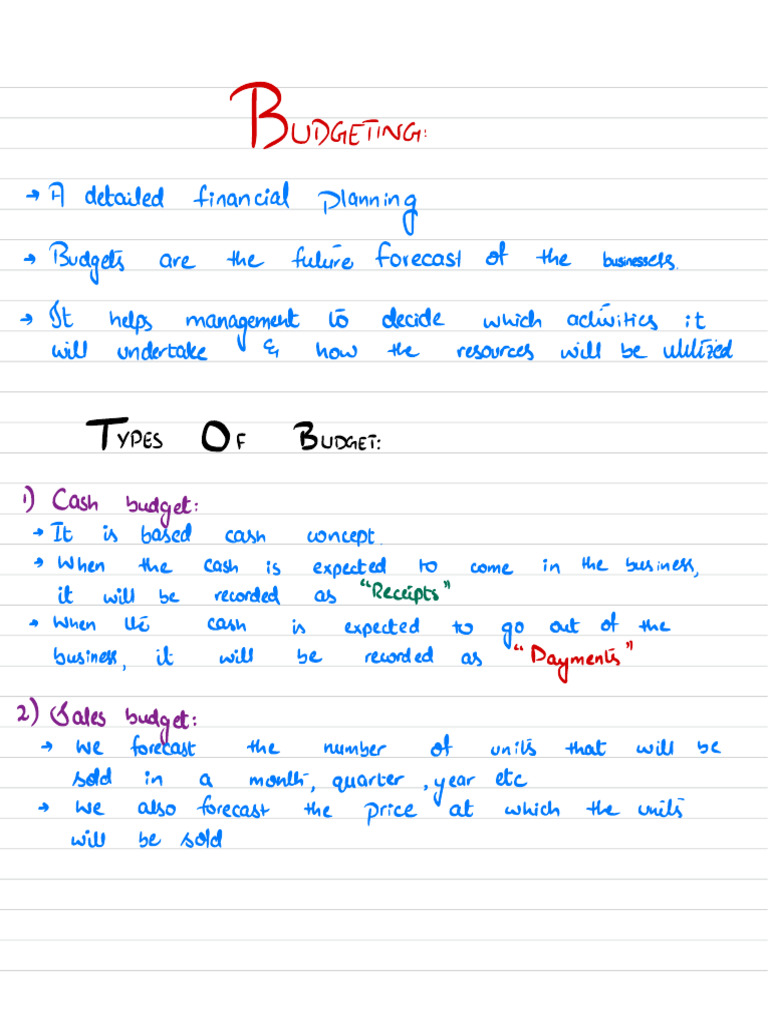 BUDGETING:
→ A detailed financial planning
→ Budgets are the future forecast of the businesses.
→ It helps management to decide which activities it
will undertake & how the resources will be utilized
TYPES OF BUDGET:
1) Cash budget:
→ It is based cash concept.
→ When the cash is expected to come in the business,
it will be recorded as "Receipts"
→ When the cash is expected to go out of the
business, it will be recorded as "Payments"
2) Sales budget:
→ We forecast the number of units that will be
sold in a month, quarter, year etc
→ We also forecast the price at which the units
will be sold